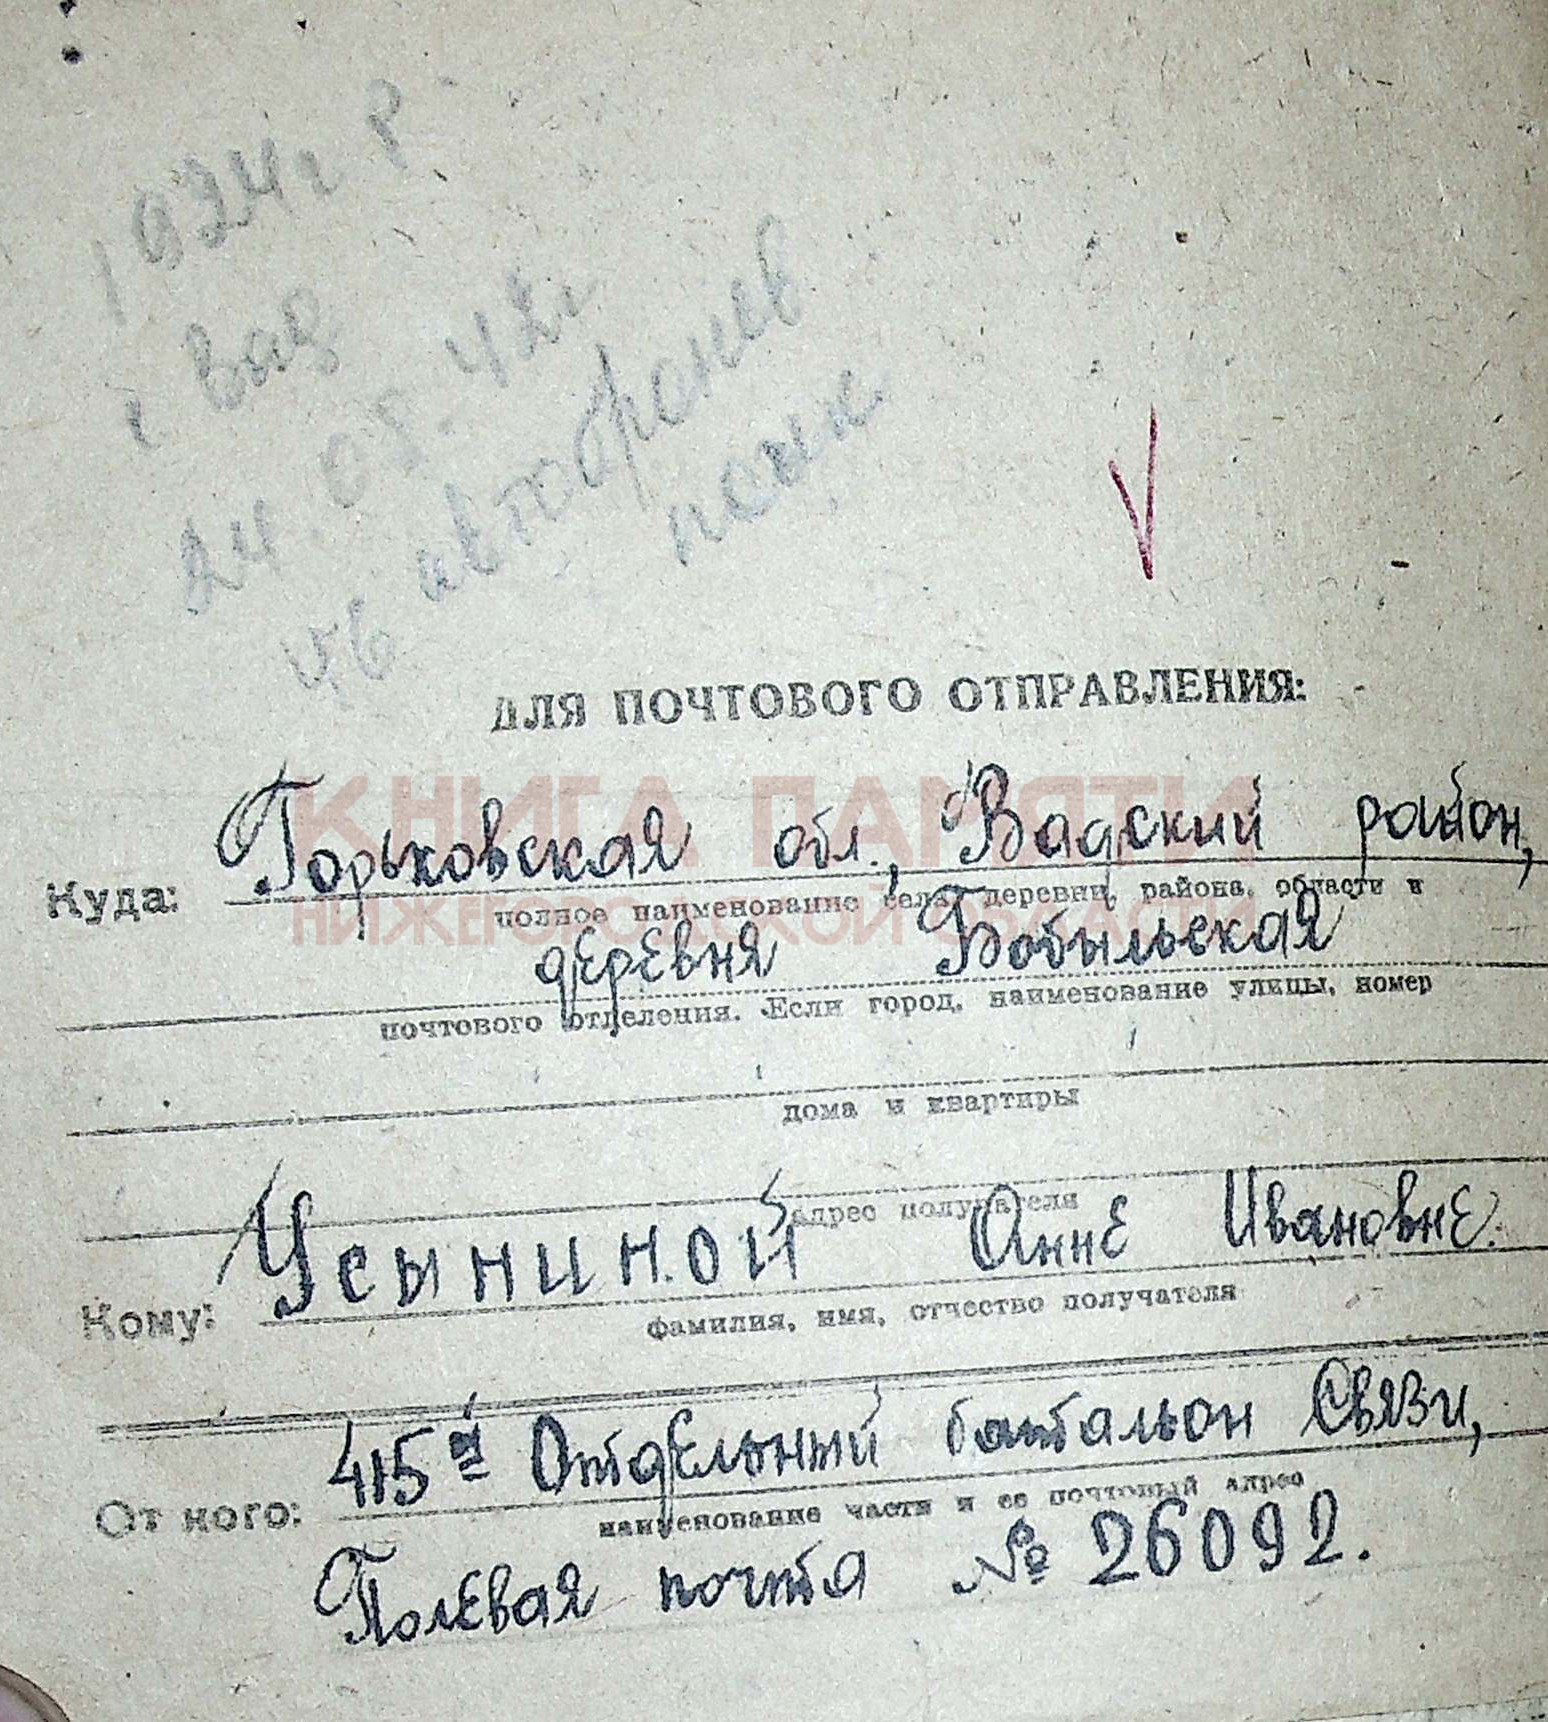 1924 г р
г Вад
24. 08. 42 г
46 автобронев
полк
ДЛЯ ПОЧТОВОГО ОТПРАВЛЕНИЯ:
КНИГА ПАМЯТИ
НИЖЕГОРОДСКОЙ ОБЛАСТИ
Куда: Горьковская обл., Вадский район,
полное наименование села, деревни, района, области и
деревня Бобыльская
почтового отделения. Если город, наименование улицы, номер
дома и квартиры
адрес получателя
Кому: Усыниной Анне Ивановне.
фамилия, имя, отчество получателя
От кого: 415й Отдельный батальон Связи,
наименование части и ее почтовый адрес
Полевая почта № 26092.